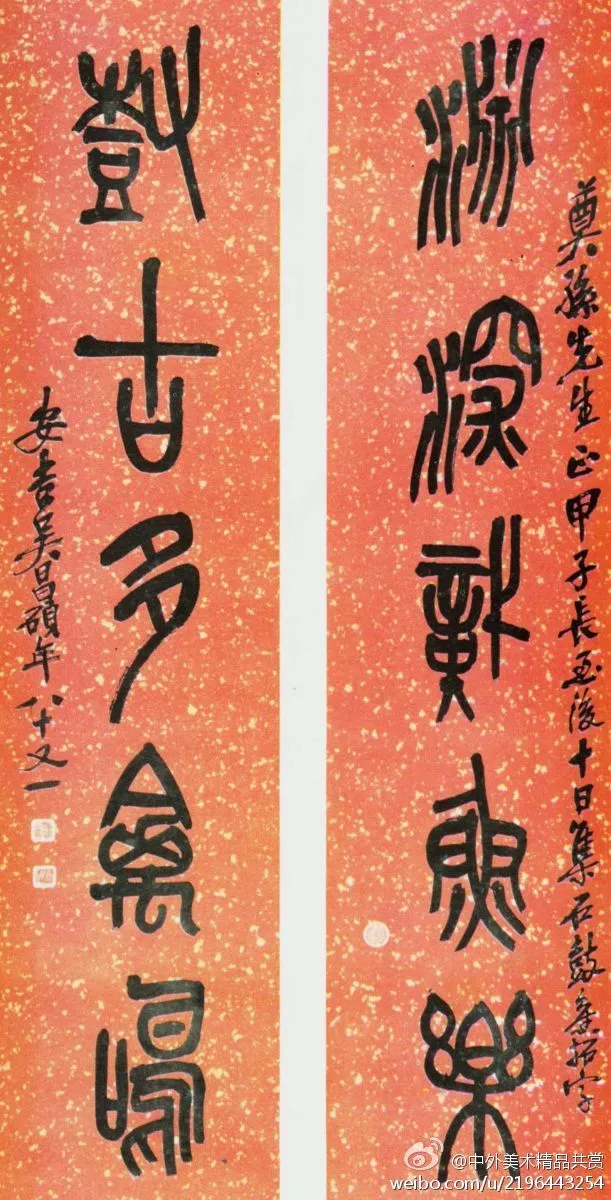 淵深識魚樂
奠孫先生正甲子長至後十日集石鼓拓字
樹古多禽鳴
安吉吳昌碩年八十又一
@中外美术精品共赏
weibo.com/u/2196443254